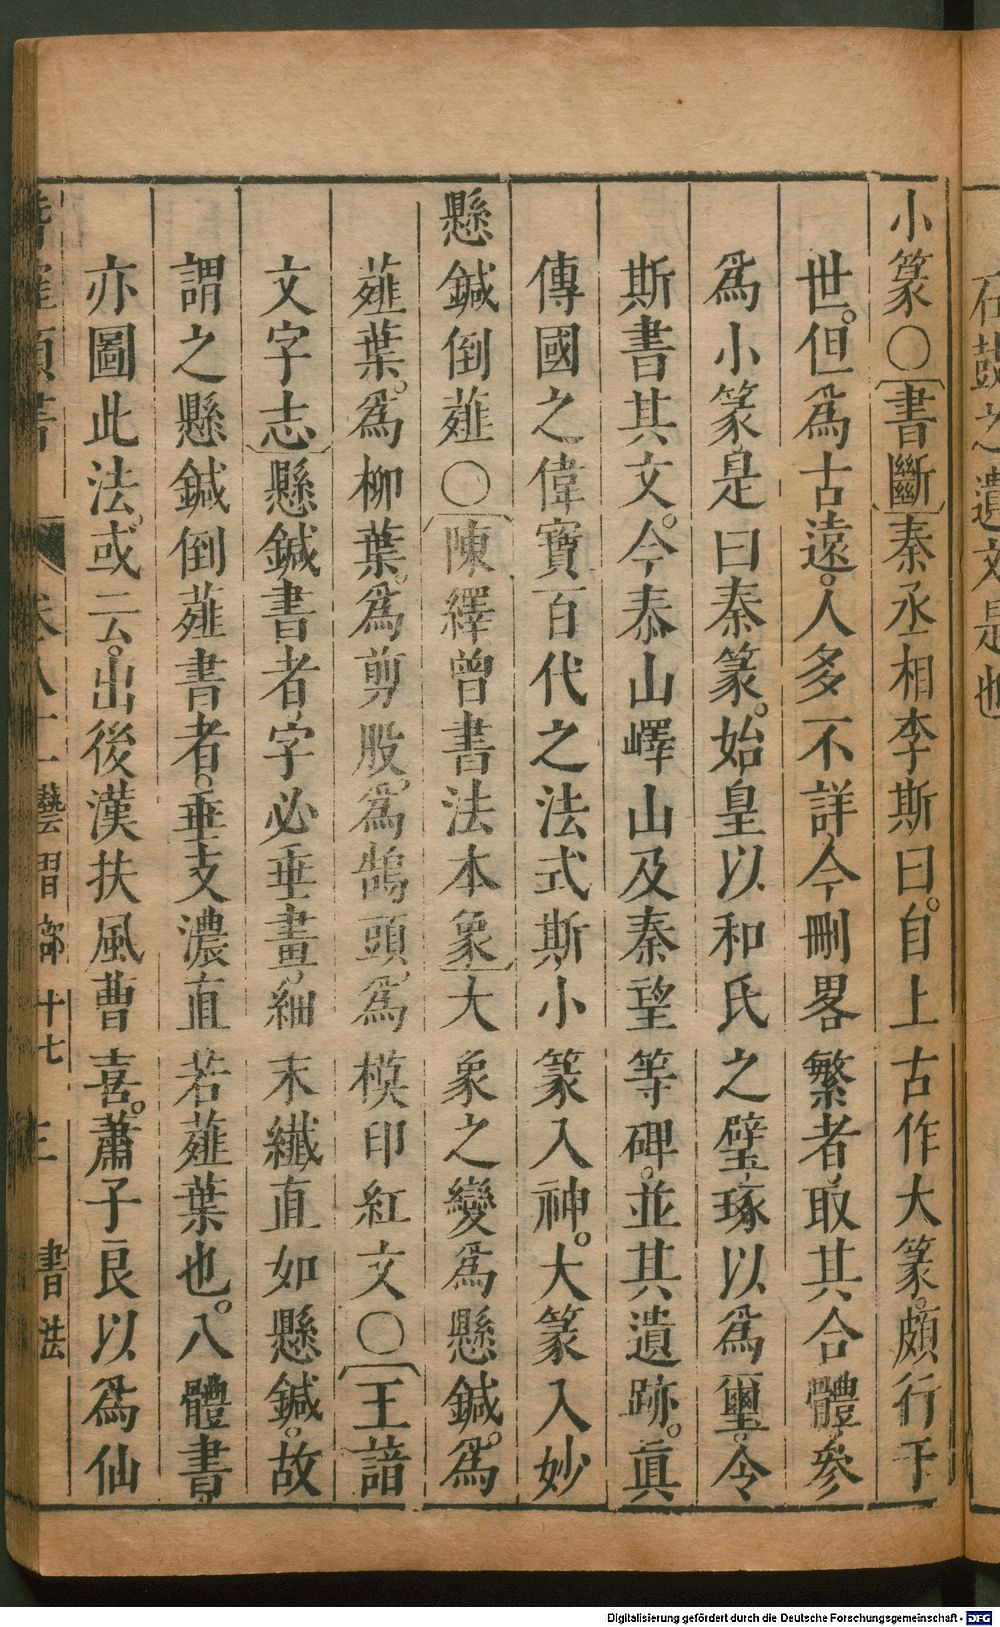 石鼓之遺文是也
小篆〇書斷秦丞相李斯曰。自上古作大篆。頗行于
世。但爲古遠。人多不詳今刪畧繁者取其合體參
爲小篆是曰秦篆。始皇以和氏之璧琢以爲璽。令
斯書其文。今泰山嶧山及秦望等碑。並其遺跡。眞
傳國之偉寶百代之法式斯小篆入神。大篆入妙
懸鍼倒薤〇陳繹曾書法本象大象之變爲懸鍼。爲
薤葉。爲柳葉。爲剪股。爲鵠頭。爲模印紅文〇王諳
文字志懸鍼書者字必垂畫細末纖直如懸鍼。故
謂之懸鍼倒薤書者。垂支濃直若薤葉也。八體書
亦圖此法。或云。出後漢扶風曹喜。蕭子良以爲仙
類書 卷八十一藝習部 十七 三 書法
Digitalisierung gefördert durch die Deutsche Forschungsgemeinschaft - DFG